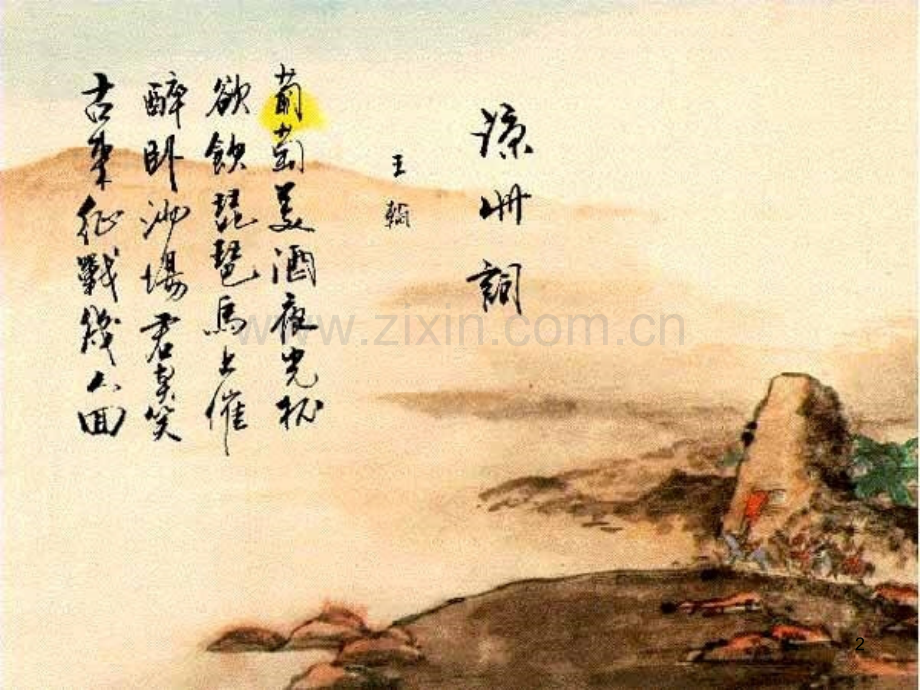 涼州詞
王翰
葡萄美酒夜光杯
欲飲琵琶馬上催
醉卧沙場君莫笑
古來征戰幾人回
www.zixin.com.cn
2